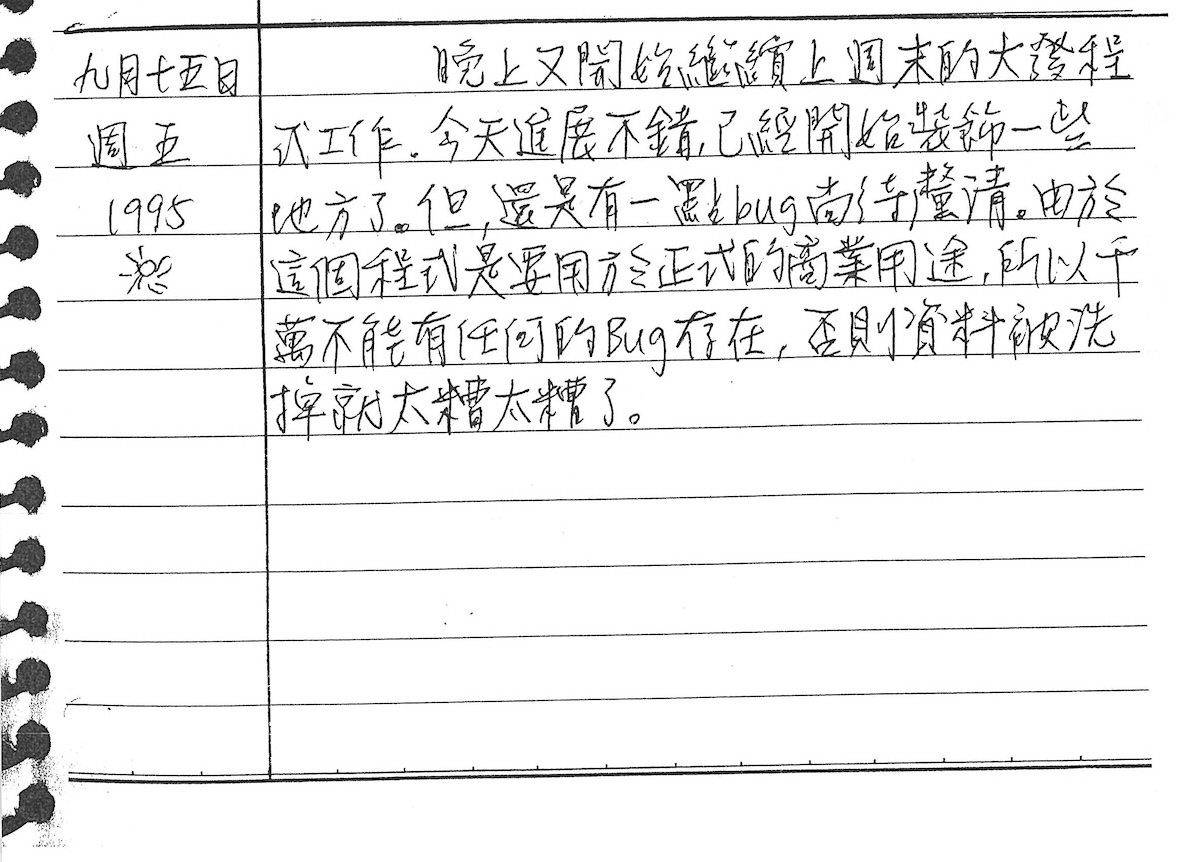 九月十五日
週五
1995
晚上又開始繼續上週末的大發程
式工作.今天進展不錯,已經開始裝飾一些
地方了。但,還是有一點bug尚待釐清。由於
這個程式是要用於正式的商業用途,所以千
萬不能有任何的Bug存在,否則資料被洗
掉就太糟太糟了。